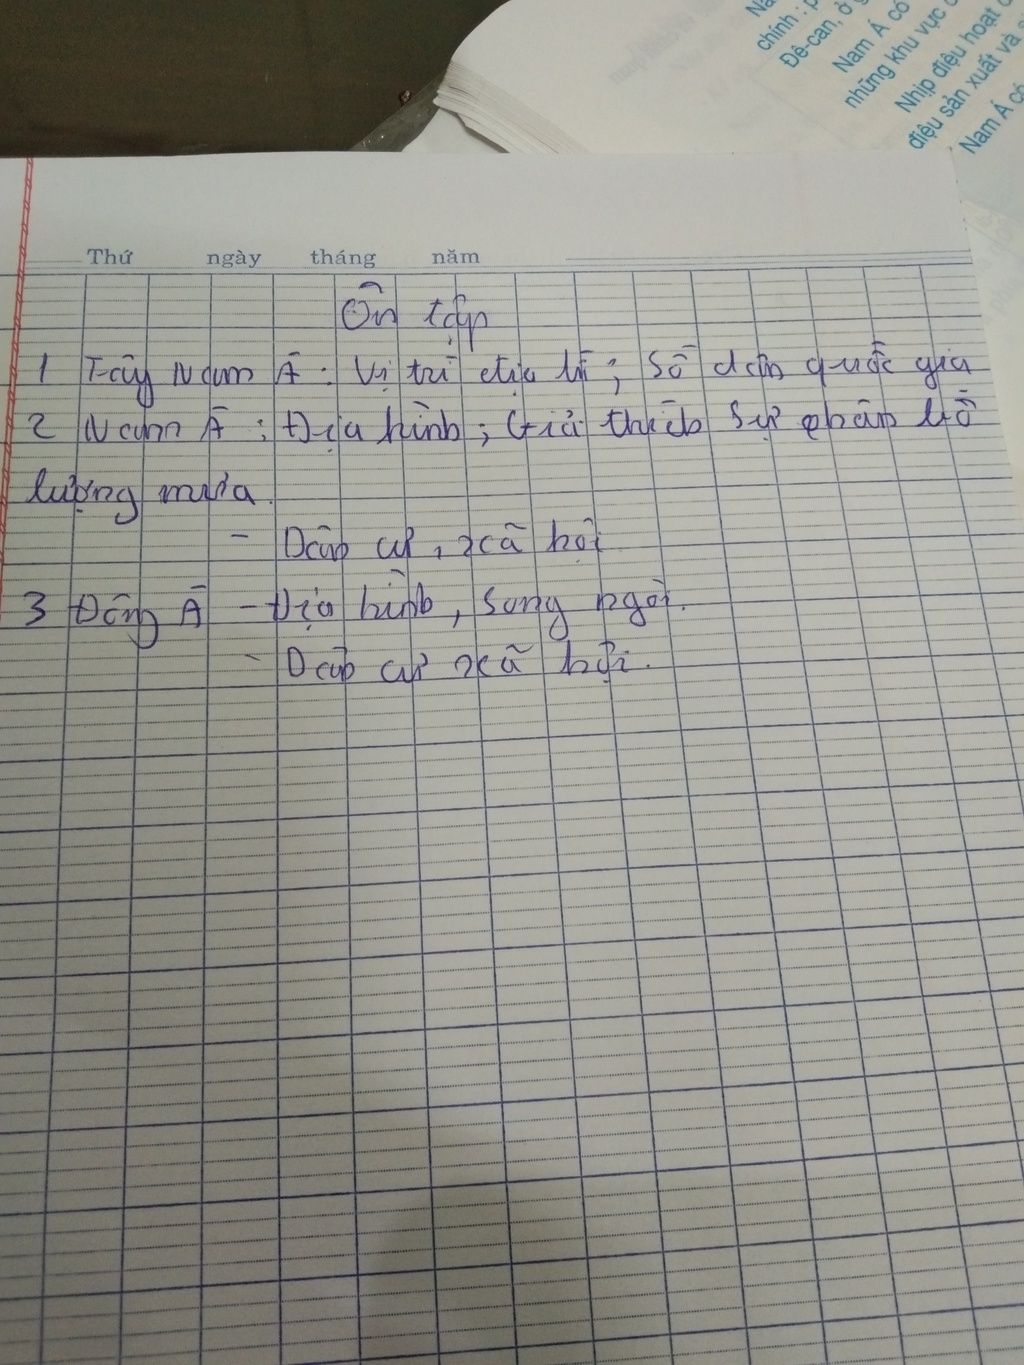 Nam Á có
chính : p
Đê-can, ở g
Nam Á có
những khu vực c
Nhịp điệu hoạt đ
điệu sản xuất và s
Nam Á có
Thứ ngày tháng năm
Ôn tập
1 Tây Nam Á : Vị trí địa lí ; Số dân quốc gia
2 Nam Á : Địa hình ; Giải thích sự phân bố
lượng mưa.
- Dân cư, xã hội
3 Đông Á - Địa hình, song ngòi.
- Dân cư xã hội.